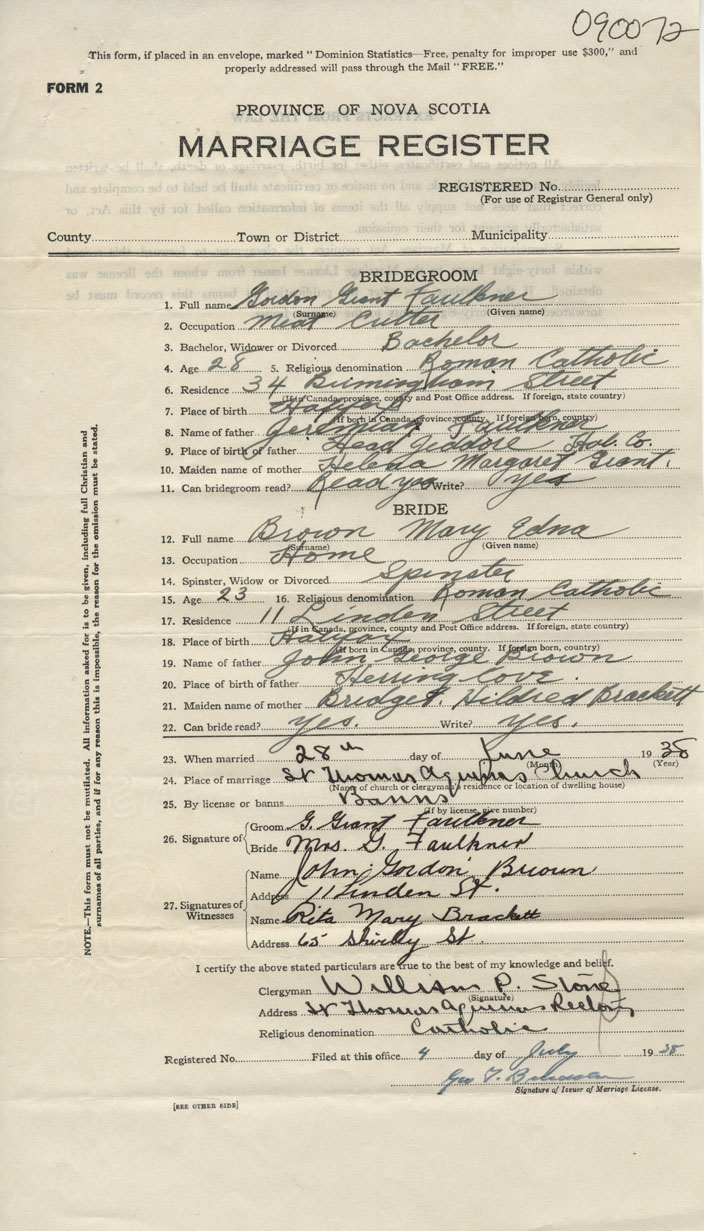 090072
This form, if placed in an envelope, marked "Dominion Statistics—Free, penalty for improper use $300," and
properly addressed will pass through the Mail "FREE."
FORM 2
PROVINCE OF NOVA SCOTIA
MARRIAGE REGISTER
REGISTERED No.
(For use of Registrar General only)
County Town or District Municipality
BRIDEGROOM
1. Full name Gordon Grant Faulkner
(Surname) (Given name)
2. Occupation Meat Cutter
3. Bachelor, Widower or Divorced Bachelor
4. Age 28 5. Religious denomination Roman Catholic
6. Residence 34 Birmingham Street
(If in Canada, province, county and Post Office address. If foreign, state country)
7. Place of birth Halifax
(If born in Canada, province, county. If foreign born, country)
8. Name of father Faulkner
9. Place of birth of father Head Hal. Co.
10. Maiden name of mother Helena Margaret Grant.
11. Can bridegroom read? Read yes Write? yes
BRIDE
12. Full name Brown Mary Edna
(Surname) (Given name)
13. Occupation Home
14. Spinster, Widow or Divorced Spinster
15. Age 23 16. Religious denomination Roman Catholic
17. Residence 11 Linden Street
(If in Canada, province, county and Post Office address. If foreign, state country)
18. Place of birth Halifax
(If born in Canada, province, county. If foreign born, country)
19. Name of father John George Brown
20. Place of birth of father Herring Cove.
21. Maiden name of mother Bridget. Hildred Brackett
22. Can bride read? yes. Write? yes.
23. When married 28th day of June 1938
(Month) (Year)
24. Place of marriage St Thomas Aquinas Church
(Name of church or clergyman's residence or location of dwelling house)
25. By license or banns Banns
(If by license, give number)
26. Signature of Groom G. Grant Faulkner
Bride Mrs. G. Faulkner
27. Signatures of Witnesses Name John Gordon Brown
Address 11 Linden St.
Name Rita Mary Brackett
Address 65 Shirley St.
I certify the above stated particulars are true to the best of my knowledge and belief.
Clergyman William P. Stone
(Signature)
Address St Thomas Aquinas Rectory
Religious denomination Catholic
Registered No. Filed at this office 4 day of July 1938
Signature of Issuer of Marriage License.
[SEE OTHER SIDE]
NOTE.—This form must not be mutilated. All information asked for is to be given, including full Christian and
surnames of all parties, and if for any reason this is impossible, the reason for the omission must be stated.